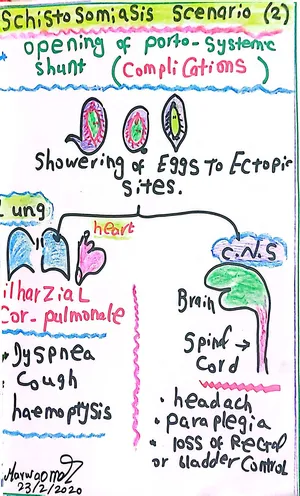 Schistosomiasis Scenario (2)
opening of porto-systemic
shunt (Complications)
Showering of Eggs To Ectopic
Sites.
Lung
heart
C.N.S
ilharzial
Cor-pulmonale
Dyspnea
Cough
haemoptysis
Brain
Spinal →
Cord
• headach
• paraplegia
• loss of Rectal
or bladder Control
23/2/2020